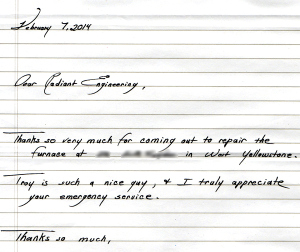 February 7, 2014
Dear Radiant Engineering,
Thanks so very much for coming out to repair the
furnace at in West Yellowstone.
Troy is such a nice guy, & I truly appreciate
your emergency service.
Thanks so much,